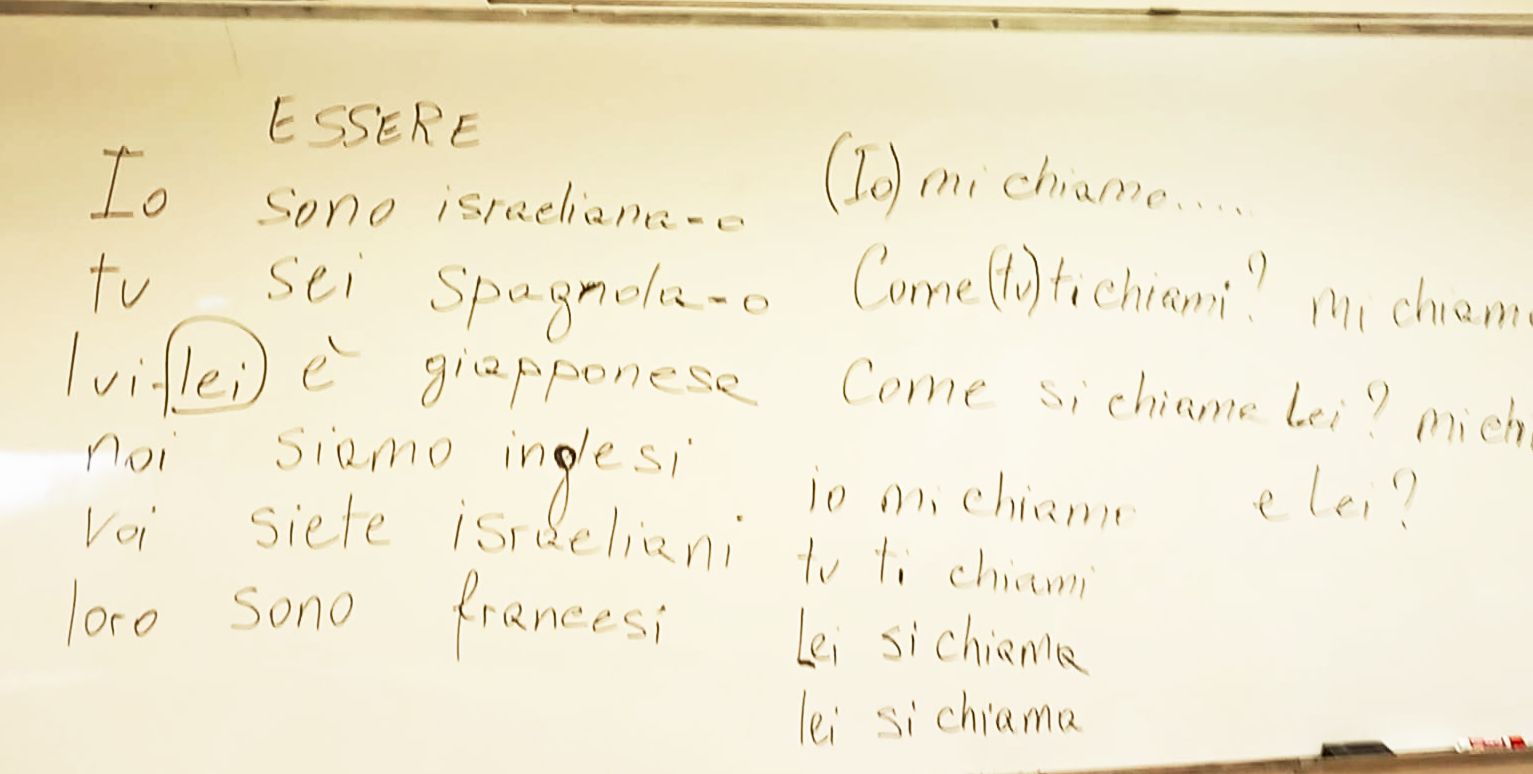 ESSERE
Io sono israeliana-o
tu sei spagnola-o
lui-lei è giapponese
noi siamo inglesi
voi siete israeliani
loro sono francesi
(Io) mi chiamo.....
Come (tu) ti chiami? mi chiam
Come si chiama Lei? mi ch
io mi chiamo e Lei?
tu ti chiami
Lei si chiama
lei si chiama